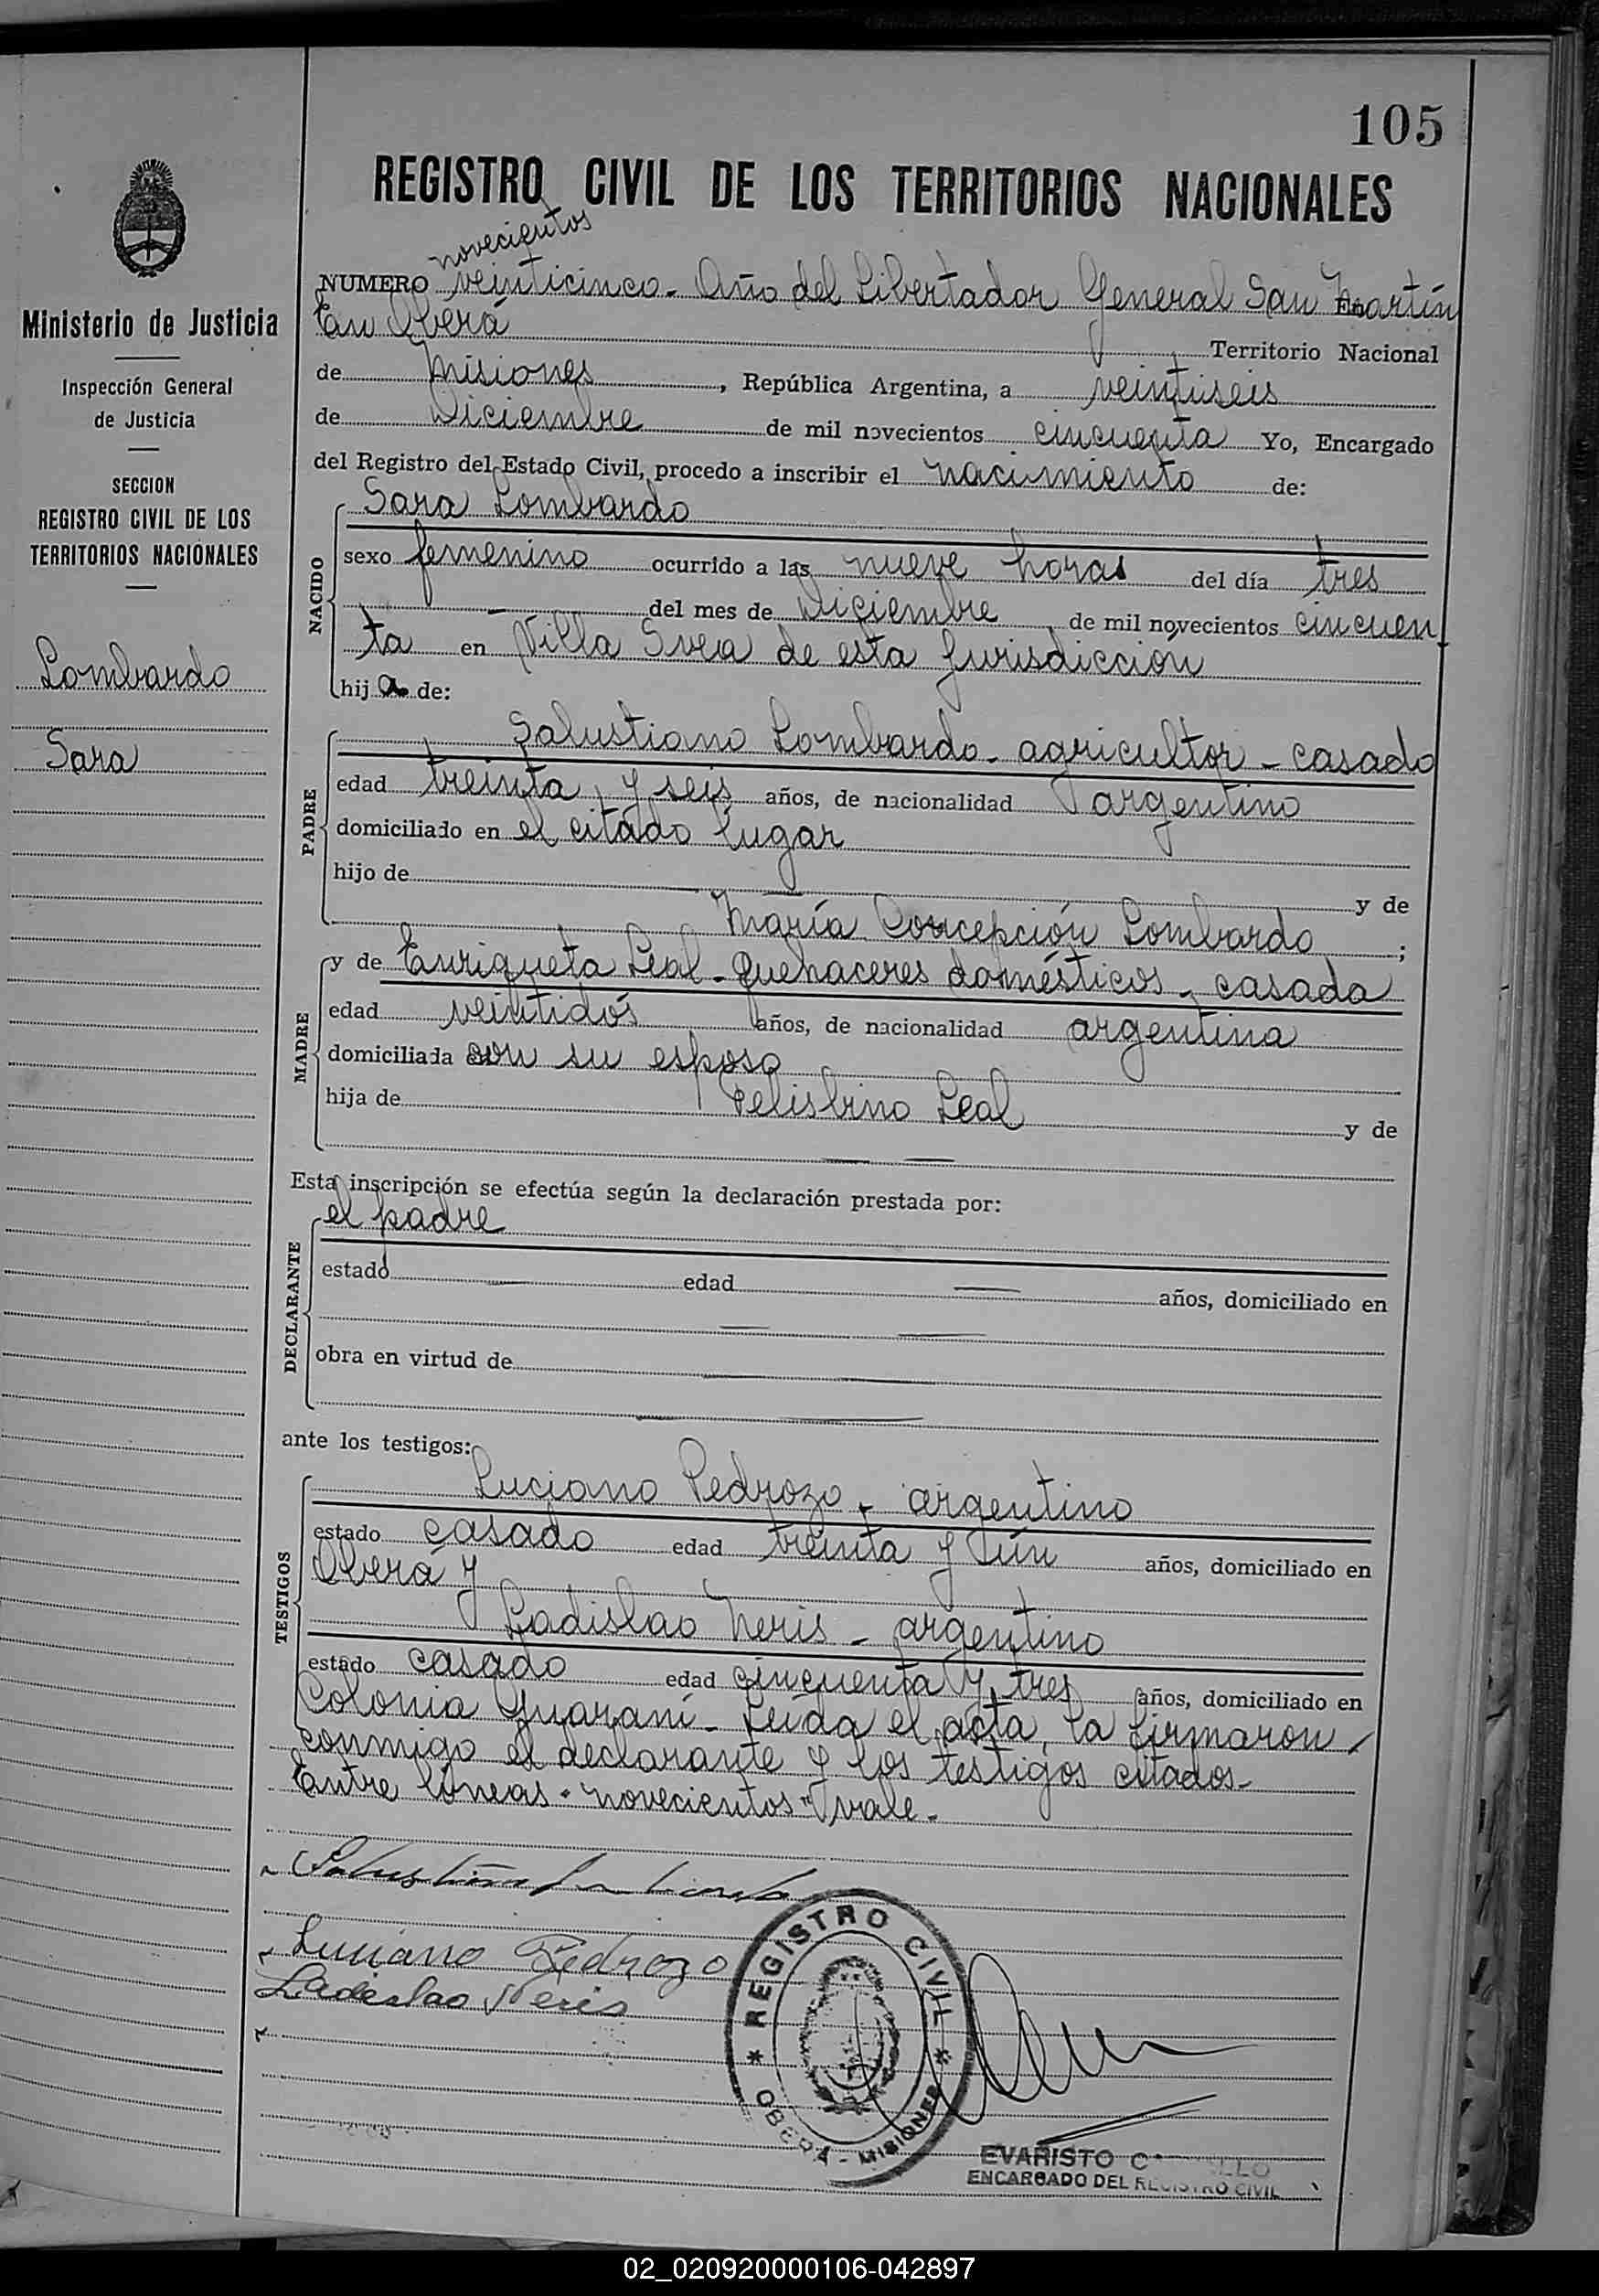 105
REGISTRO CIVIL DE LOS TERRITORIOS NACIONALES
Ministerio de Justicia
Inspección General
de Justicia
SECCION
REGISTRO CIVIL DE LOS
TERRITORIOS NACIONALES
Lombardo
Sara
novecientos
NUMERO veinticinco - Año del Libertador General San Martín
En Oberá Territorio Nacional
de Misiones, República Argentina, a veintiseis
de Diciembre de mil novecientos cincuenta Yo, Encargado
del Registro del Estado Civil, procedo a inscribir el nacimiento de:
NACIDO
Sara Lombardo
sexo femenino ocurrido a las nueve horas del día tres
del mes de Diciembre de mil novecientos cincuen
ta en Villa Svea de esta Jurisdicción
hija de:
PADRE
Salustiano Lombardo - agricultor - casado
edad treinta y seis años, de nacionalidad argentino
domiciliado en el citado lugar
hijo de y de
María Concepción Lombardo ;
MADRE
y de Enriqueta Leal - quehaceres domésticos - casada
edad veintidós años, de nacionalidad argentina
domiciliada con su esposo
hija de Felisbino Leal y de
Esta inscripción se efectúa según la declaración prestada por:
DECLARANTE
el padre
estado edad años, domiciliado en
obra en virtud de
ante los testigos:
TESTIGOS
Luciano Pedrozo - argentino
estado casado edad treinta y un años, domiciliado en
Oberá y
Ladislao Neris - argentino
estado casado edad cincuenta y tres años, domiciliado en
Colonia Guaraní - Leída el acta, la firmaron
conmigo el declarante y los testigos citados -
Entre líneas "novecientos" vale -
Luciano Pedrozo
Ladislao Neris
REGISTRO CIVIL
OBERA - MISIONES
EVARISTO
ENCARGADO DEL REGISTRO CIVIL
02_020920000106-042897